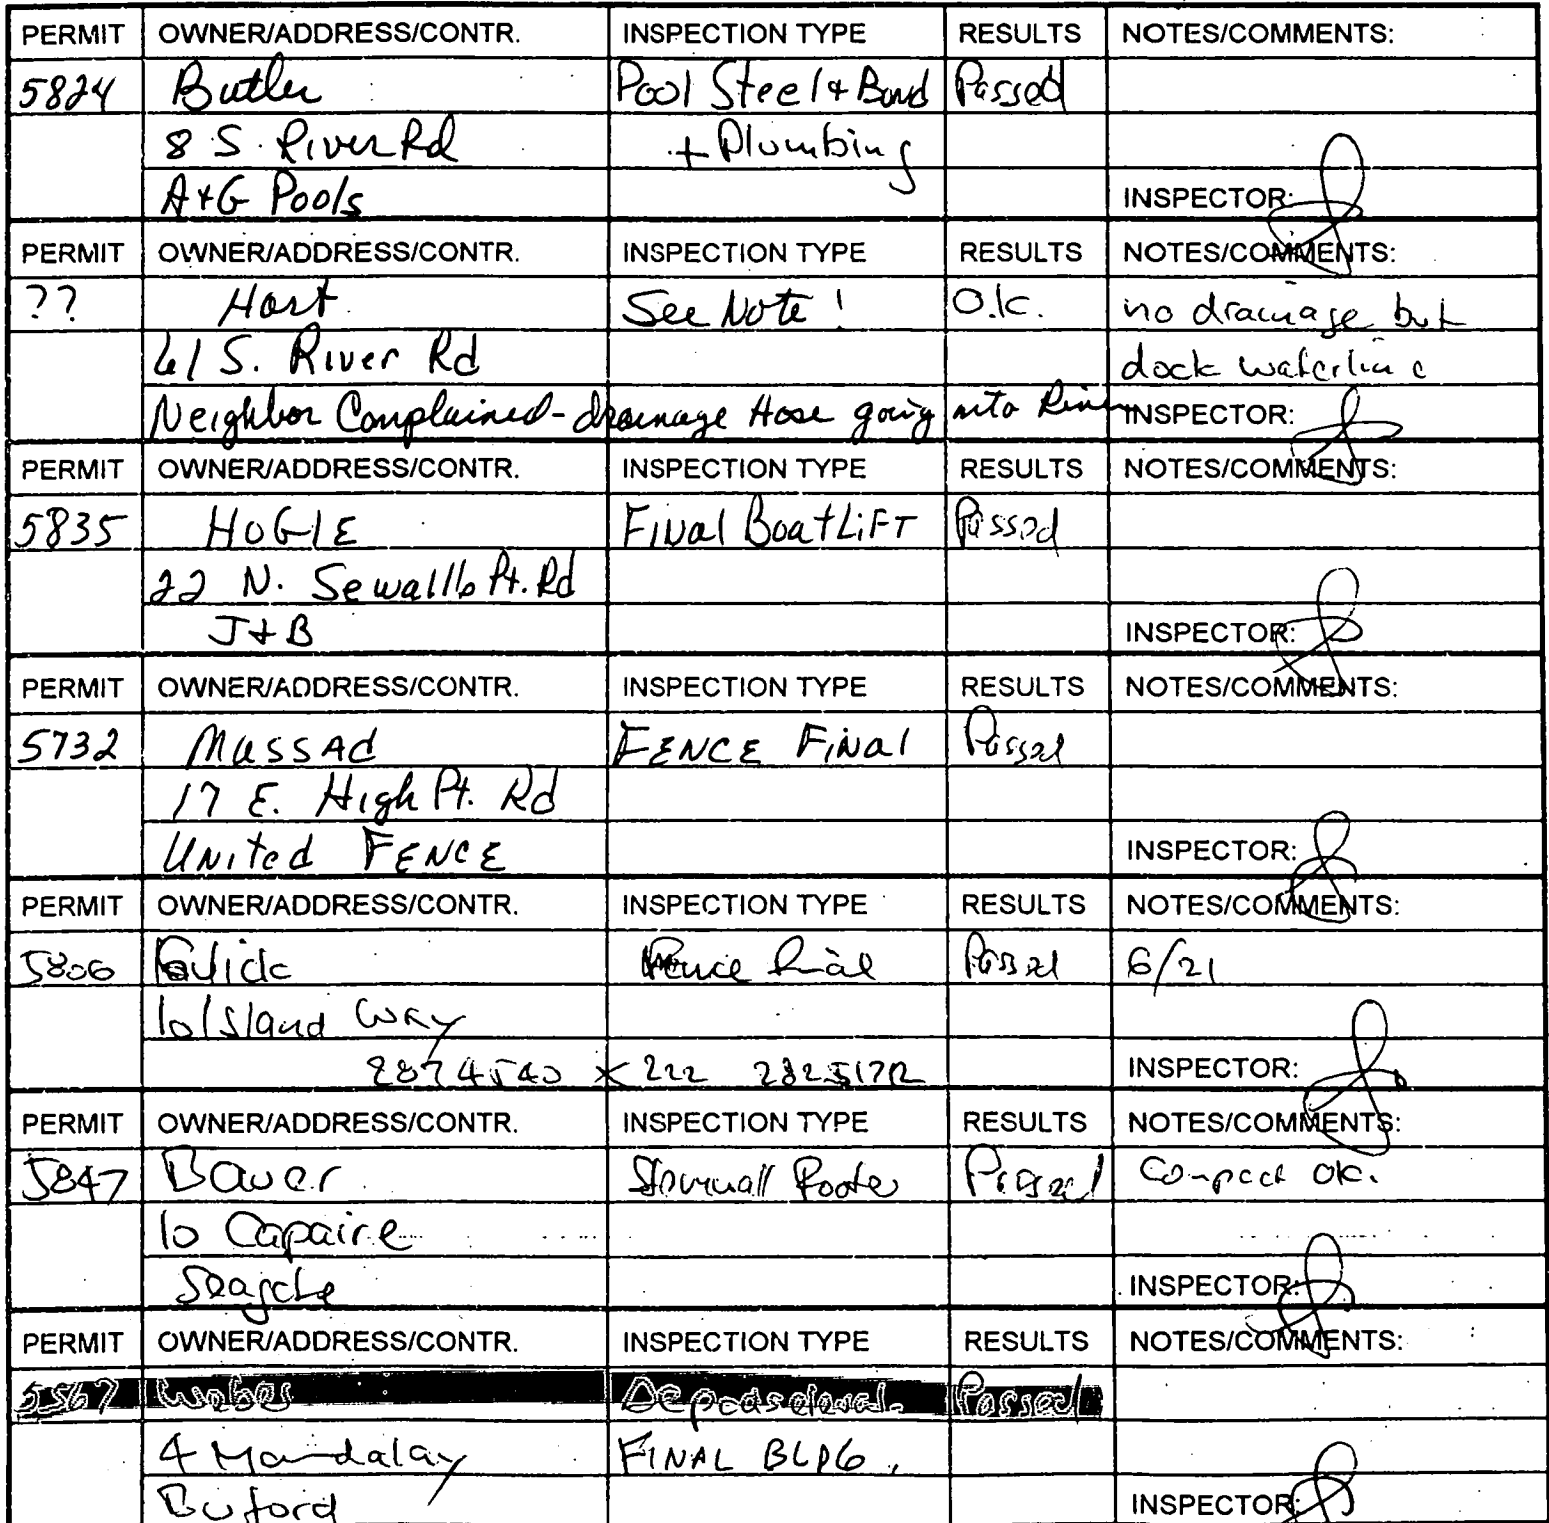 PERMIT OWNER/ADDRESS/CONTR. INSPECTION TYPE RESULTS NOTES/COMMENTS:
5824 Butler Pool Steel + Bond Passed
8 S. River Rd + Plumbing
A+G Pools INSPECTOR:
PERMIT OWNER/ADDRESS/CONTR. INSPECTION TYPE RESULTS NOTES/COMMENTS:
?? Hart See Note! O.K. no drainage but
61 S. River Rd dock waterline
Neighbor Complained - drainage Hose going into River INSPECTOR:
PERMIT OWNER/ADDRESS/CONTR. INSPECTION TYPE RESULTS NOTES/COMMENTS:
5835 HOGLE FINAL Boat LIFT Passed
22 N. Sewalls Pt. Rd
J+B INSPECTOR:
PERMIT OWNER/ADDRESS/CONTR. INSPECTION TYPE RESULTS NOTES/COMMENTS:
5732 MASSAd FENCE FINAL Passed
17 E. High Pt. Rd
UNITed FENCE INSPECTOR:
PERMIT OWNER/ADDRESS/CONTR. INSPECTION TYPE RESULTS NOTES/COMMENTS:
5806 Fence final Passed 6/21
Island Way
2874540 x 222 INSPECTOR:
PERMIT OWNER/ADDRESS/CONTR. INSPECTION TYPE RESULTS NOTES/COMMENTS:
5847 Bauer Stemwall Footer Passed Compact OK.
10 Capaire
INSPECTOR:
PERMIT OWNER/ADDRESS/CONTR. INSPECTION TYPE RESULTS NOTES/COMMENTS:
5567 Passed
4 Mandalay FINAL BLDG.
Buford INSPECTOR: